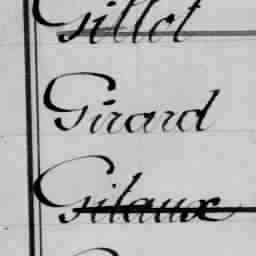 Gillet
Girard
Gilaux